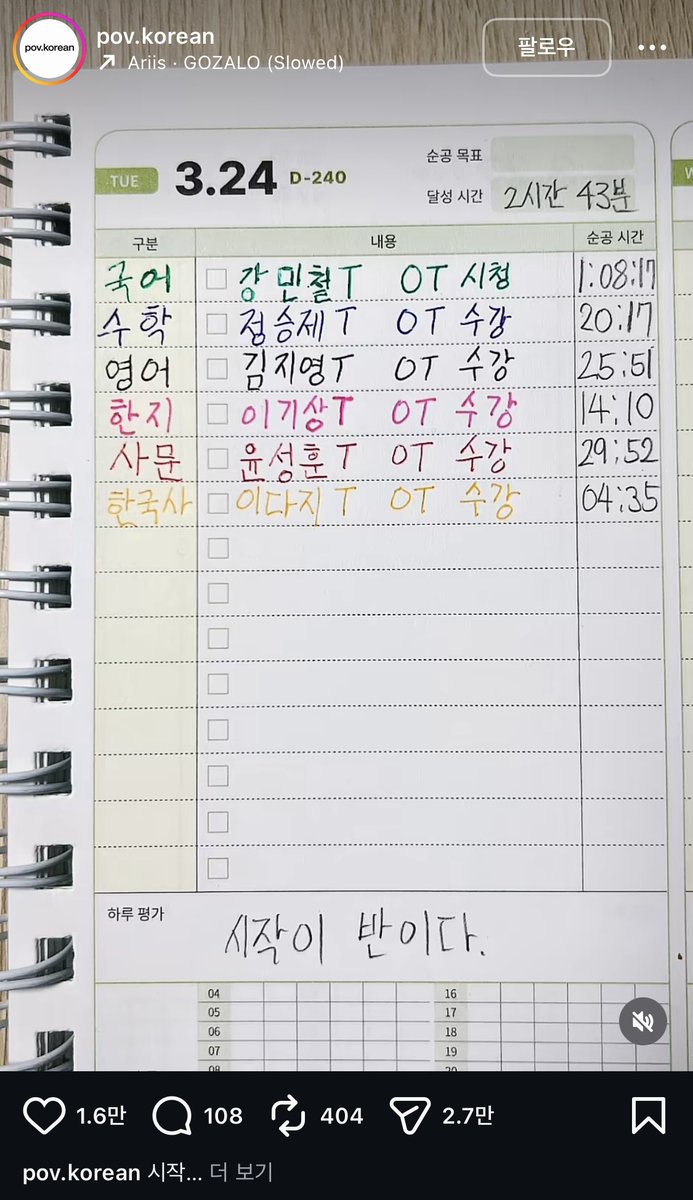 pov.korean
Ariis · GOZALO (Slowed)
팔로우
TUE 3.24 D-240
순공 목표
달성 시간 2시간 43분
구분 내용 순공 시간
국어 강민철T OT 시청 1:08:17
수학 정승제T OT 수강 20:17
영어 김지영T OT 수강 25:51
한지 이기상T OT 수강 14:10
사문 윤성훈T OT 수강 29:52
한국사 이다지T OT 수강 04:35
하루 평가
시작이 반이다.
04 16
05 17
06 18
07 19
08 20
1.6만 108 404 2.7만
pov.korean 시작... 더 보기